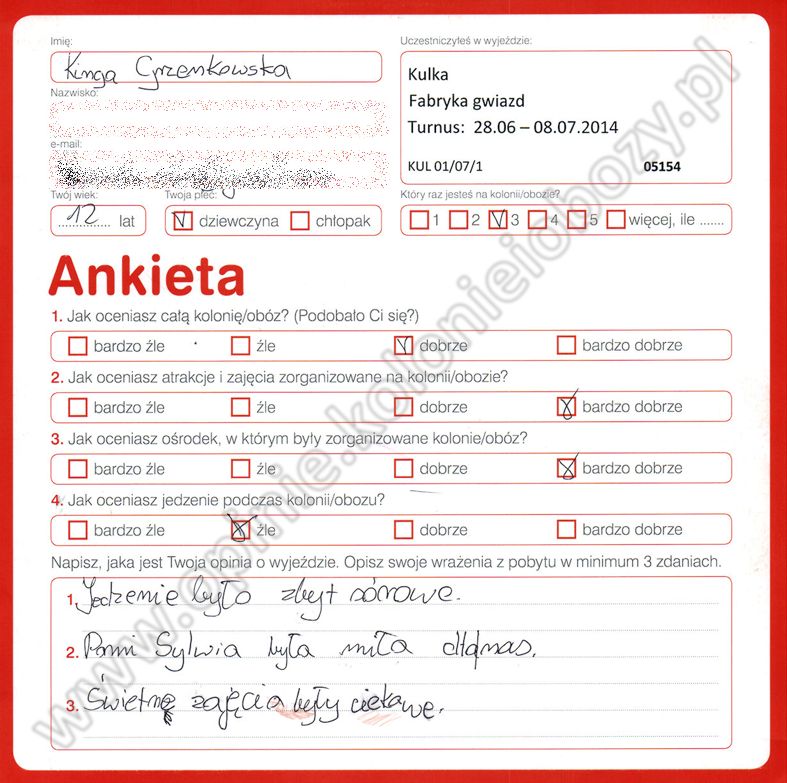 Imię:
Kinga Grzenkowska
Nazwisko:
e-mail:
Twój wiek:
12 lat
Twoja płeć:
dziewczyna chłopak
Uczestniczyłeś w wyjeździe:
Kulka
Fabryka gwiazd
Turnus: 28.06 – 08.07.2014
KUL 01/07/1 05154
Który raz jesteś na kolonii/obozie?
1 2 3 4 5 więcej, ile .......
Ankieta
1. Jak oceniasz całą kolonię/obóz? (Podobało Ci się?)
bardzo źle źle dobrze bardzo dobrze
2. Jak oceniasz atrakcje i zajęcia zorganizowane na kolonii/obozie?
bardzo źle źle dobrze bardzo dobrze
3. Jak oceniasz ośrodek, w którym były zorganizowane kolonie/obóz?
bardzo źle źle dobrze bardzo dobrze
4. Jak oceniasz jedzenie podczas kolonii/obozu?
bardzo źle źle dobrze bardzo dobrze
Napisz, jaka jest Twoja opinia o wyjeździe. Opisz swoje wrażenia z pobytu w minimum 3 zdaniach.
1. Jedzenie było zbyt sórowe.
2. Pani Sylwia była miła dla nas.
3. Świetne zajęcia były ciekawe.
www.opinie.kolonieiobozy.pl